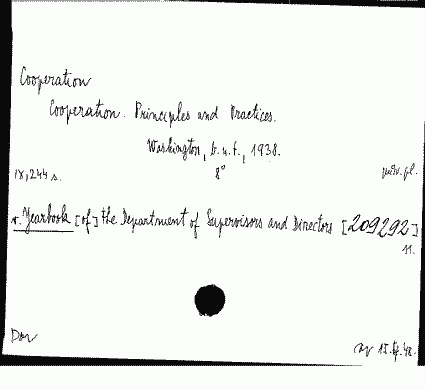 Cooperation
Cooperation. Principles and Practices.
Washington, b.u.t., 1938.
IX, 244 s. 8°
v. Yearbook [of] the Department of Supervisors and Directors [209292]
11.
Dar 15.